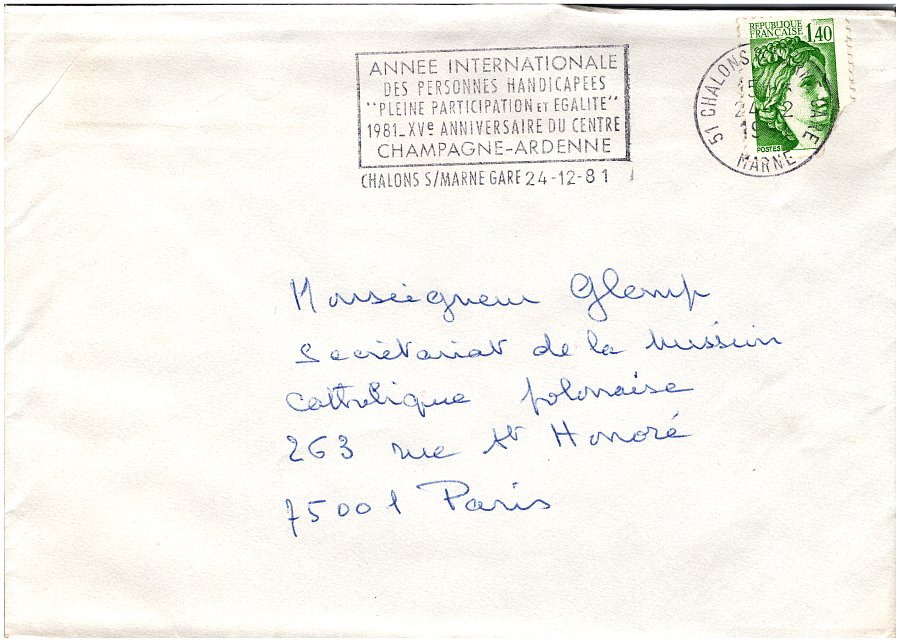 ANNEE INTERNATIONALE
DES PERSONNES HANDICAPEES
"PLEINE PARTICIPATION ET EGALITE"
1981_XVe ANNIVERSAIRE DU CENTRE
CHAMPAGNE-ARDENNE
CHALONS S/MARNE GARE 24-12-81
REPUBLIQUE
FRANÇAISE 1,40
POSTES
51 CHALONS GARE
15
24-12
19
MARNE
Monseigneur Glemp
Secrétariat de la Mission
Catholique polonaise
263 rue St Honoré
75001 Paris